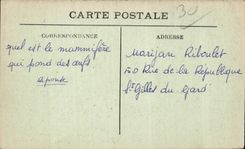 CARTE POSTALE
30
CORRESPONDANCE
ADRESSE
quel est le mammifère
qui pond des œufs
réponse
Marijan Riboulet
20 Rue de la République
St Gilles du Gard